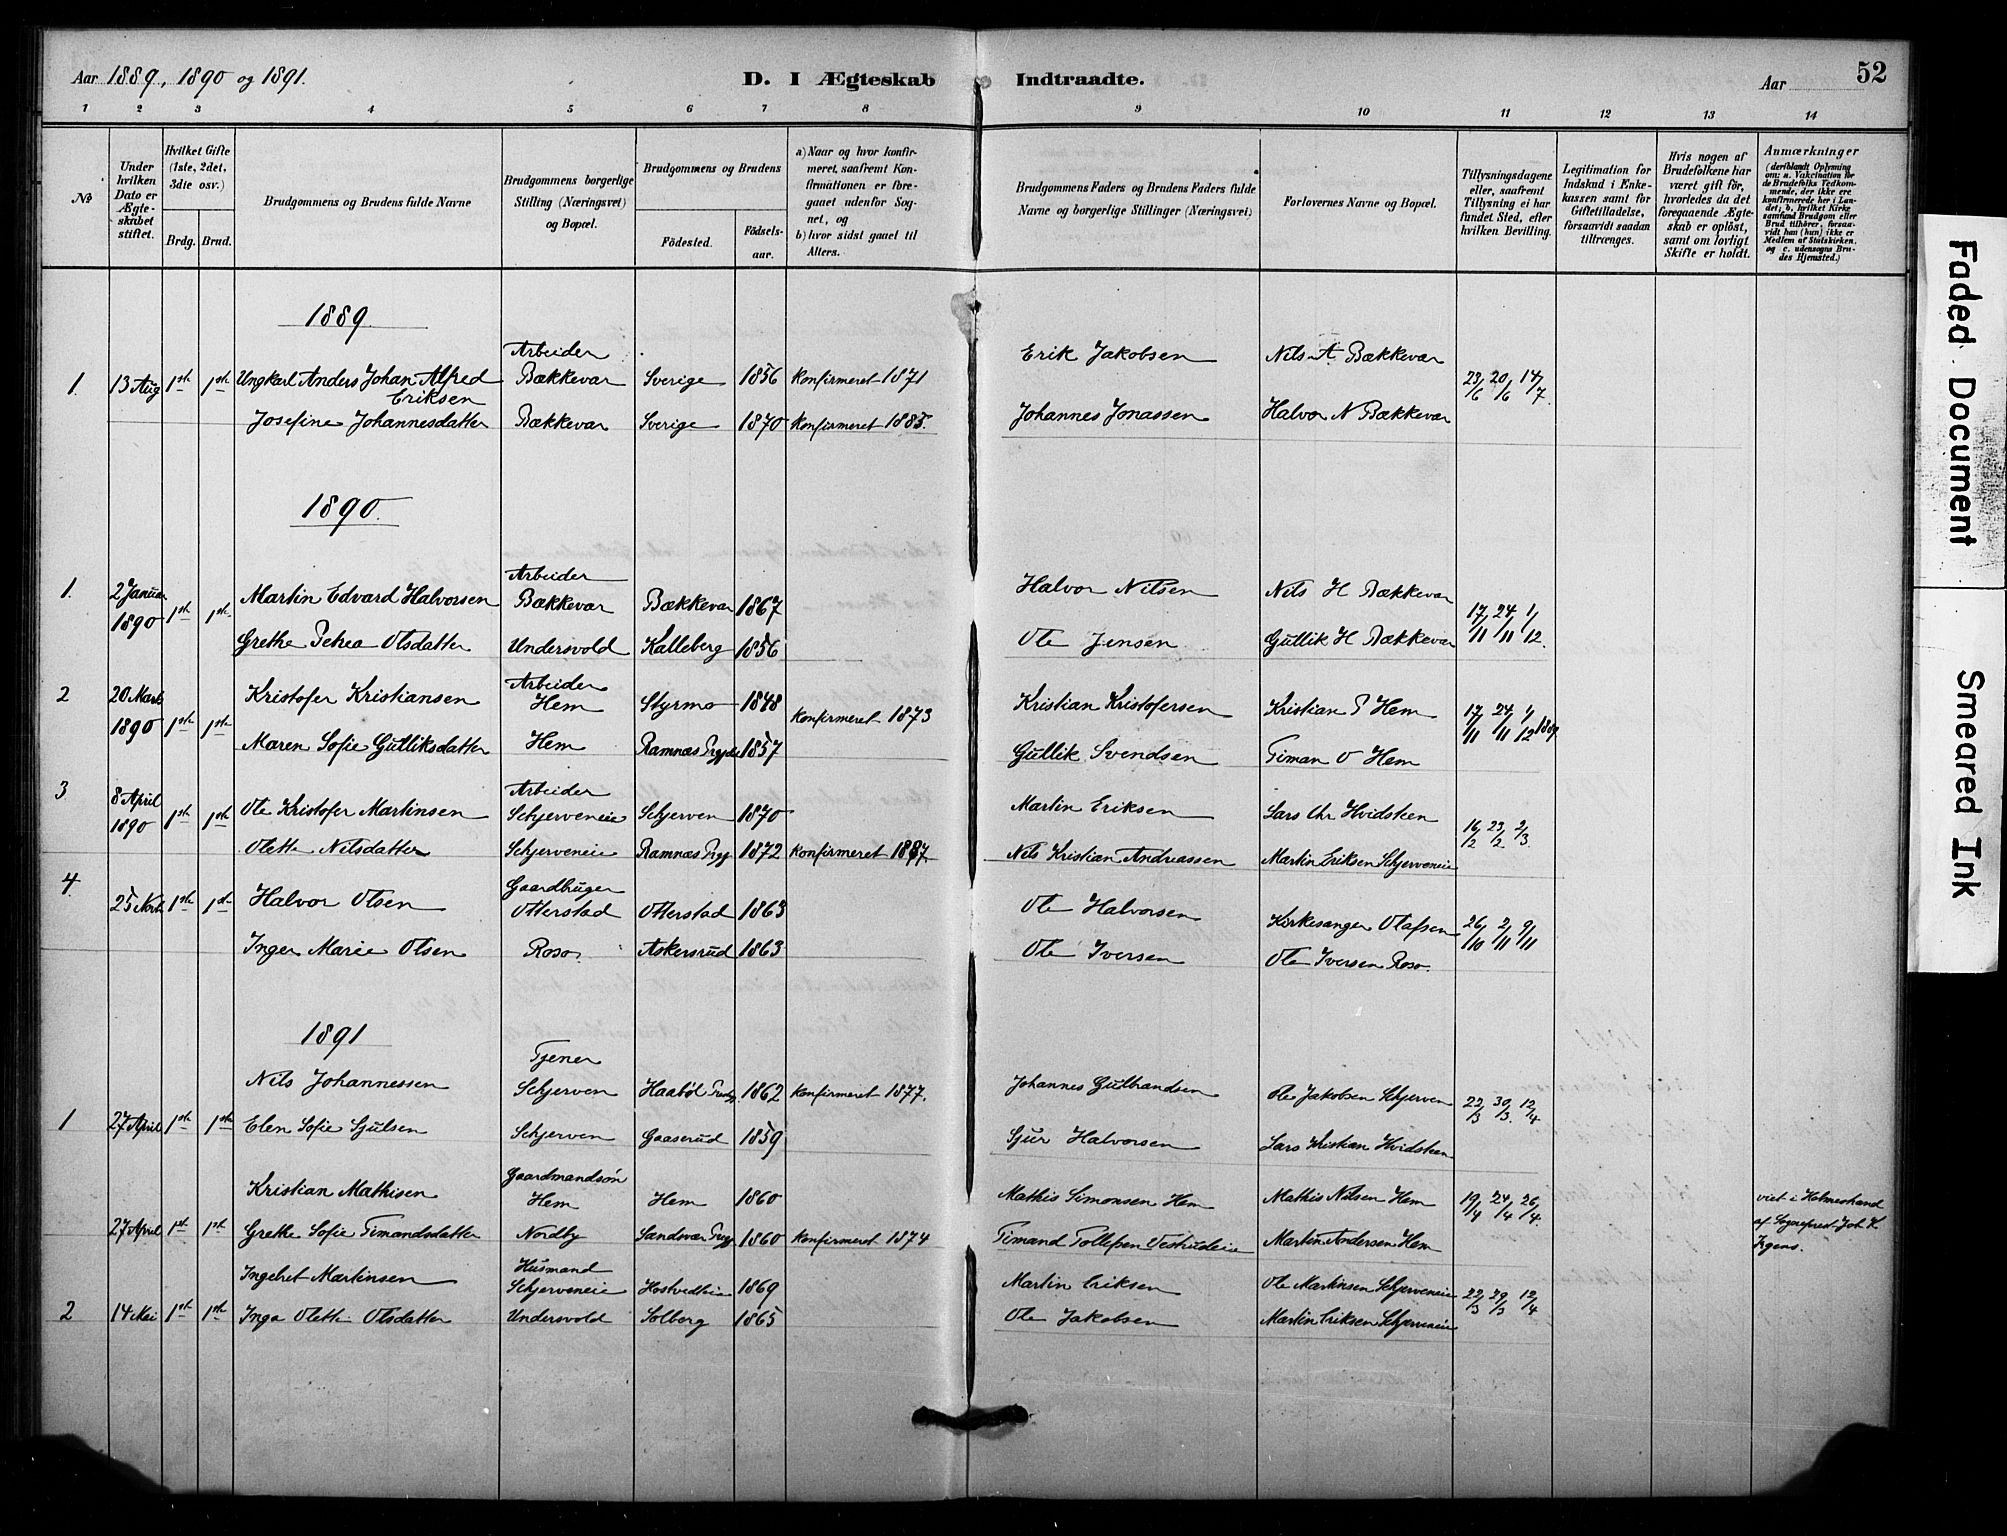 Aar 1889, 1890 og 1891.
D. I Ægteskab Indtraadte.
Aar
52
1 2 3 4 5 6 7 8 9 10 11 12 13 14
No
Under hvilken Dato er Ægteskabet stiftet.
Hvilket Gifte (1ste, 2det, 3die osv.)
Brdg. Brud.
Brudgommens og Brudens fulde Navne
Brudgommens borgerlige Stilling (Næringsvei) og Bopæl.
Brudgommens og Brudens
Födested.
Födselsaar.
a) Naar og hvor konfirmeret, saafremt Konfirmationen er foregaaet udenfor Sognet, og
b) hvor sidst gaaet til Alters.
Brudgommens Faders og Brudens Faders fulde Navne og borgerlige Stillinger (Næringsvei)
Forlovernes Navne og Bopæl.
Tillysningsdagene eller, saafremt Tillysning ei har fundet Sted, efter hvilken Bevilling.
Legitimation for Indskud i Enkekassen samt for Giftetilladelse, forsaavidt saadan tiltrænges.
Hvis nogen af Brudefolkene har været gift för, hvorledes da det foregaaende Ægteskab er oplöst, samt om lovligt Skifte er holdt.
Anmærkninger
(deriblandt Oplysning om: a. Vakcination for de Brudefolks Vedkommende, der ikke ere konfirmerede her i Landet; b. hvilket Kirkesamfund Brudgom eller Brud tilhörer, forsaavidt han (hun) ikke er Medlem af Statskirken, og c. udensogns Brudes Hjemsted.)
1889.
Arbeider
1. 13 Aug 1st 1st Ungkarl Anders Johan Alfred Eriksen Bækkevar Sverige 1856 Konfirmeret 1871 Erik Jakobsen Nils A Bækkevar 23/6 20/6 14/7.
Josefine Johannesdatter Bækkevar Sverige 1870 Konfirmeret 1885. Johannes Jonassen Halvor N Bækkevar
1890.
Arbeider
1. 2 Januar 1890 1st 1st Martin Edvard Halvorsen Bækkevar Bækkevar 1867 Halvor Nilsen Nils H Bækkevar 17/11 24/11 1/12.
Grethe Petrea Olsdatter Undersvold Kalleberg 1856 Ole Jensen Gullik H Bækkevar
Arbeider
2 20 Marts 1890 1st 1st Kristofer Kristiansen Hem Styrmo 1848 Konfirmeret 1873 Kristian Kristofersen Kristian P Hem 17/11 24/11 1/12 1889
Maren Sofie Gulliksdatter Hem Ramnæs 1857 Gullik Svendsen Timan O Hem
Arbeider
3 8 April 1890 1st 1st Ole Kristofer Martinsen Schjerveneie Schjerven 1870 Martin Eriksen Lars Chr Hvidsteen 16/2 23/2 2/3.
Olette Nilsdatter Schjerveneie Ramnæs 1872 Konfirmeret 1887. Nils Kristian Andreassen Martin Eriksen Schjerveneie
Gaardbruger
4. 25 Novb 1st 1st Halvor Olsen Otterstad Otterstad 1863 Ole Halvorsen Kirkesanger Olafsen 26/10 2/11 9/11
Inger Marie Olsen Roso. Askersrud 1863 Ole Iversen Ole Iversen Roso.
1891
Tjener
Nils Johannessen Schjerven Haabøl 1862 Konfirmeret 1877. Johannes Gulbrandsen Ole Jakobsen Schjerven 22/3 30/3. 12/4
1 27 April 1st 1st Elen Sofie Sjulsen Schjerven Gaaserud 1859 Sjur Halvorsen Lars Kristian Hvidsteen
Gaardmandsön
Kristian Mathisen Hem Hem 1860 Mathis Simonsen Hem Mathis Nilsen Hem 19/4 24/4 26/4. viet i Holmestrand
27 April 1st 1st Grethe Sofie Timandsdatter Nordby Sandsvær 1860 Konfirmeret 1874 Timand Tollefsen Martin Andersen Hem af Sogneprest Joh K. Irgens.
Husmand
Ingebret Martinsen Schjerveneie 1869 Martin Eriksen Ole Martinsen Schjerveneie 22/3 29/3 12/4
2 14 Mai 1st 1st Inga Olette Olsdatter Undersvold Solberg 1865 Ole Jakobsen Martin Eriksen Schjerveneie
Faded Document
Smeared Ink